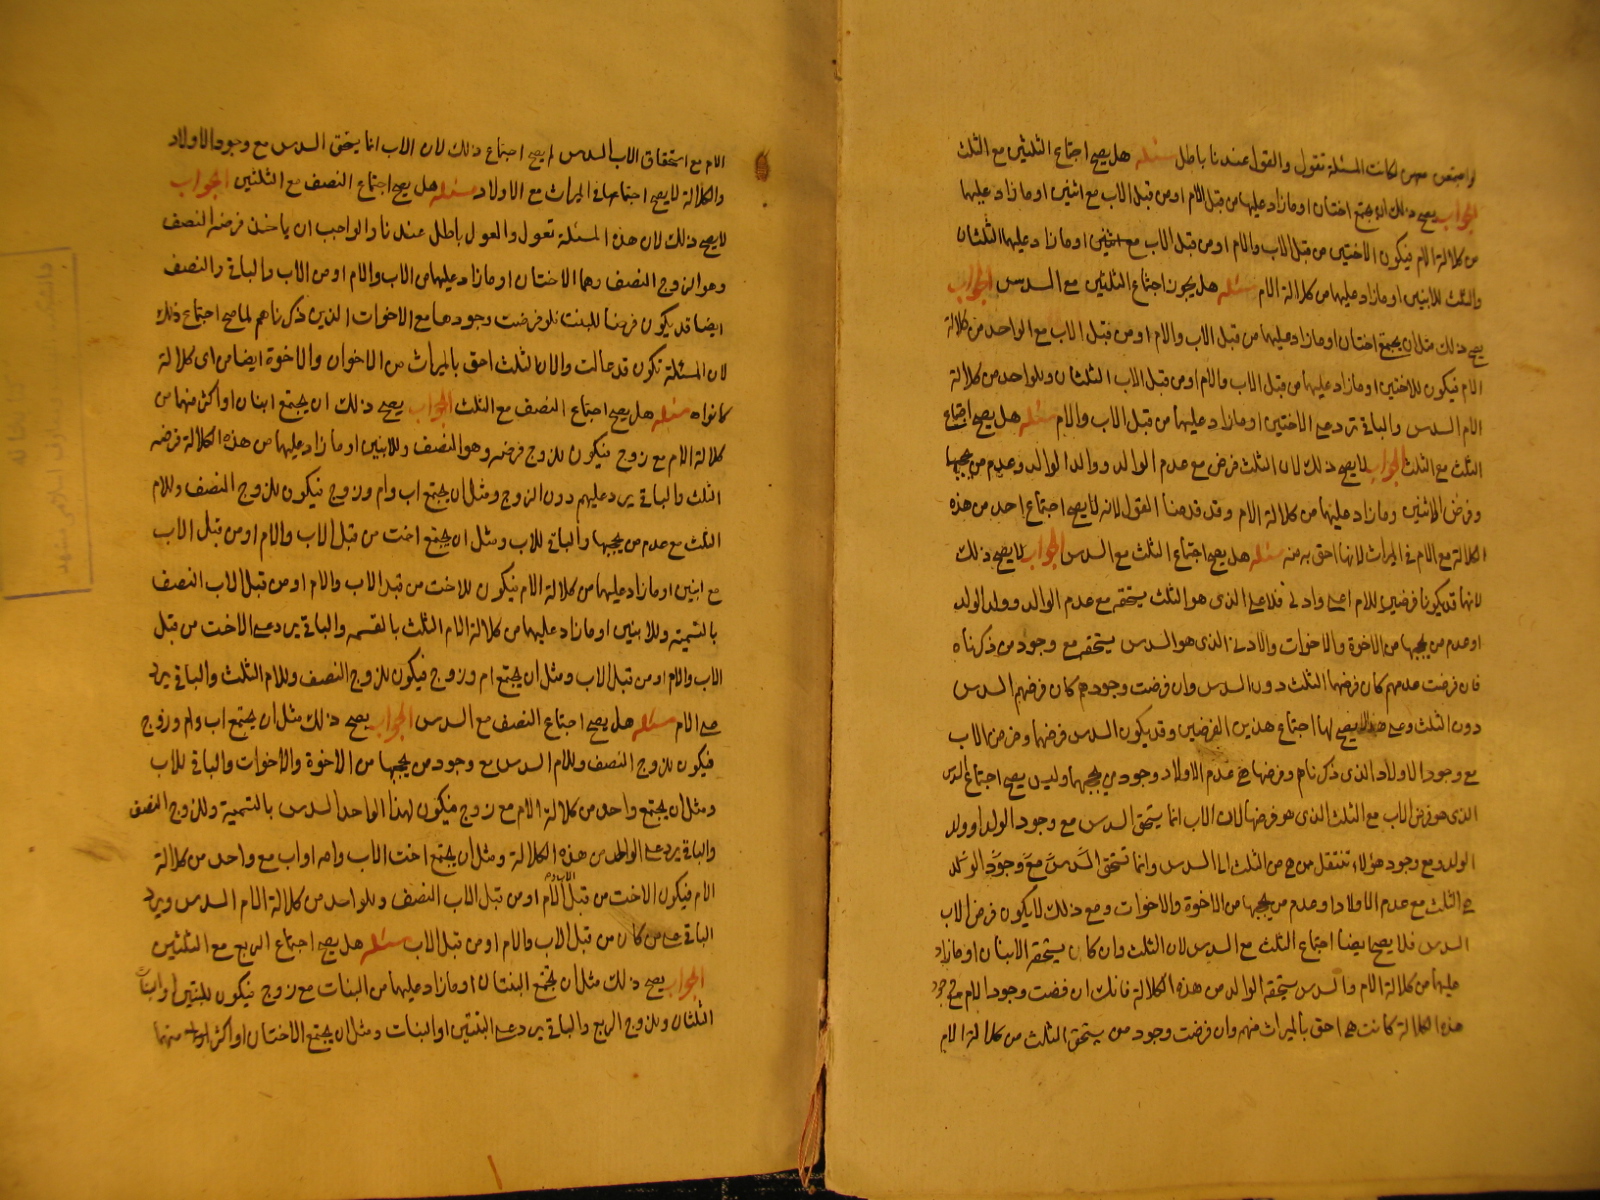 لكانت المسئلة تقول والقول عندنا باطل مسئلة هل يصح اجتماع الثلثين مع الثلث
الجواب يصح ذلك اختان او مازاد عليهما من قبل الام او من قبل الاب مع اثنين او مازاد عليهما
من كلالة الام فيكون الاختين من قبل الاب والام او من قبل الاب مع اثنين او مازاد عليهما الثلثان
والثلث للاثنين او مازاد عليهما من كلالة الام مسئلة هل يجوز اجتماع الثلثين مع السدس الجواب
يصح ذلك مثل ان يجتمع اختان او مازاد عليهما من قبل الاب والام او من قبل الاب مع الواحد من كلالة
الام فيكون للاختين او مازاد عليهما من قبل الاب والام او من قبل الاب الثلثان وللواحد من كلالة
الام السدس والباقي ترد على الاختين او مازاد عليهما من قبل الاب والام مسئلة هل يصح اجتماع
الثلث مع الثلث الجواب لا يصح ذلك لان الثلث فرض مع عدم الوالد وولد الوالد وعدم من يحجبها
وفرض الاثنين ومازاد عليهما من كلالة الام وقد قدمنا القول لانه لا يصح اجتماع احد من هذه
الكلالة مع الام في الميراث لانها احق به منه مسئلة هل يصح اجتماع الثلث مع السدس الجواب لا يصح ذلك
لانها قد يكونا فرضين للام اعلى وادنى فلاعلى الذى هو الثلث يستحقه مع عدم الوالد وولد الولد
او عدم من يحجبها من الاخوة والاخوات والادنى الذى هو السدس يستحقه مع وجود من ذكرناه
فان فرضت عدمهم كان فرضها الثلث دون السدس وان فرضت وجودهم كان فرضهم السدس
دون الثلث وعلى هذا لا يصح لها اجتماع هذين الفرضين وقد يكون السدس فرضها وفرض الاب
مع وجود الاولاد الذى ذكرناه وفرضها مع عدم الاولاد وجود من يحجبها وليس يصح اجتماع السدس
الذى هو فرض الاب مع الثلث الذى هو فرضها لان الاب انما يستحق السدس مع وجود الولد او ولد
الولد ومع وجود هؤلاء تنتقل من الثلث الى السدس وانما تستحق السدس مع وجود الولد
الثلث مع عدم الاولاد وعدم من يحجبها من الاخوة والاخوات ومع ذلك لا يكون فرض الاب
السدس فلا يصح ايضا اجتماع الثلث مع السدس لان الثلث وان كان يستحقه الابنان او مازاد
عليهما من كلالة الام والسدس يستحقه الوالد من هذه الكلالة فانك ان فرضت وجود الام مع وجود
هذه الكلالة كانت هى احق بالميراث منهم وان فرضت وجود من يستحق الثلث من كلالة الام
الام مع استحقاق الاب السدس لم يصح اجتماع ذلك لان الاب انما يستحق السدس مع وجود الاولاد
والكلالة لا يصح اجتماعها فى الميراث مع الاولاد مسئلة هل يصح اجتماع النصف مع الثلثين الجواب
لا يصح ذلك لان هذه المسئلة تعول والعول باطل عندنا والواجب ان ياخذ فرضه النصف
وهو الزوج النصف وهما الاختان او مازاد عليهما من الاب والام او من الاب والباقي والنصف
ايضا قد يكون فرضا للبنت فلو فرضت وجودها مع الاخوات الذين ذكرناهم لما صح اجتماع ذلك
لان المسئلة تكون قد عالت والان الثلث احق بالميراث من الاخوان والاخوة ايضا من اى كلالة
كانوا مسئلة هل يصح اجتماع النصف مع الثلث الجواب يصح ذلك ان يجتمع ابنان او اكثر منهما من
كلالة الام مع زوج فيكون للزوج فرضه وهو النصف وللابنين او مازاد عليهما من هذه الكلالة فرضه
الثلث والباقي يرد عليهم دون الزوج ومثل ان يجتمع اب وام وزوج فيكون للزوج النصف وللام
الثلث مع عدم من يحجبها والباقي للاب ومثل ان يجتمع اخت من قبل الاب والام او من قبل الاب
مع ابنين او مازاد عليهما من كلالة الام فيكون للاخت من قبل الاب والام او من قبل الاب النصف
بالتسمية وللابنين او مازاد عليهما من كلالة الام الثلث بالقسمة والباقي يرد على الاخت من قبل
الاب والام او من قبل الاب ومثل ان يجتمع ام وزوج فيكون للزوج النصف وللام الثلث والباقي يرد
على الام مسئلة هل يصح اجتماع النصف مع السدس الجواب يصح ذلك مثل ان يجتمع اب وام وزوج
فيكون للزوج النصف وللام السدس مع وجود من يحجبها من الاخوة والاخوات والباقي للاب
ومثل ان يجتمع واحد من كلالة الام مع زوج فيكون لهذا الواحد السدس بالتسمية وللزوج النصف
والباقي يرد على الواحد من هذه الكلالة ومثل ان يجتمع اخت الاب وامه او اب مع واحد من كلالة
الام فيكون الاخت من قبل الاب والام او من قبل الاب النصف وللواحد من كلالة الام السدس ويرد
الباقي على من كان من قبل الاب والام او من قبل الاب مسئلة هل يصح اجتماع الربع مع الثلثين
الجواب يصح ذلك مثل ان يجتمع البنتان او مازاد عليهما من البنات مع زوج فيكون للبنتين او البنات
الثلثان وللزوج الربع والباقي يرد على البنتين او البنات ومثل ان يجتمع الاختان او اكثر منهما